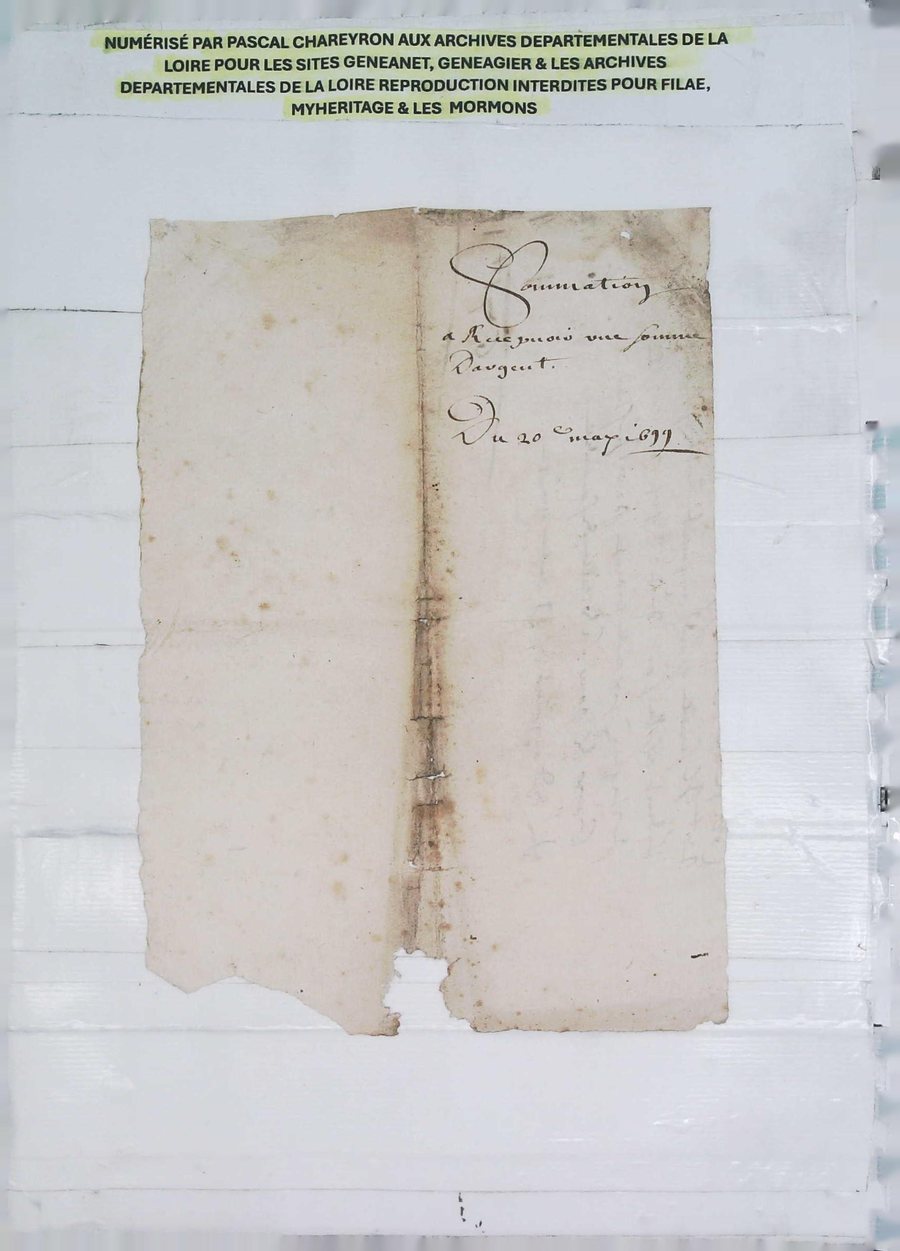 NUMÉRISÉ PAR PASCAL CHAREYRON AUX ARCHIVES DEPARTEMENTALES DE LA
LOIRE POUR LES SITES GENEANET, GENEAGIER & LES ARCHIVES
DEPARTEMENTALES DE LA LOIRE REPRODUCTION INTERDITES POUR FILAE,
MYHERITAGE & LES MORMONS
Sommation
a Recepuoir vne somme
Dargent.
Du 20e may 1699